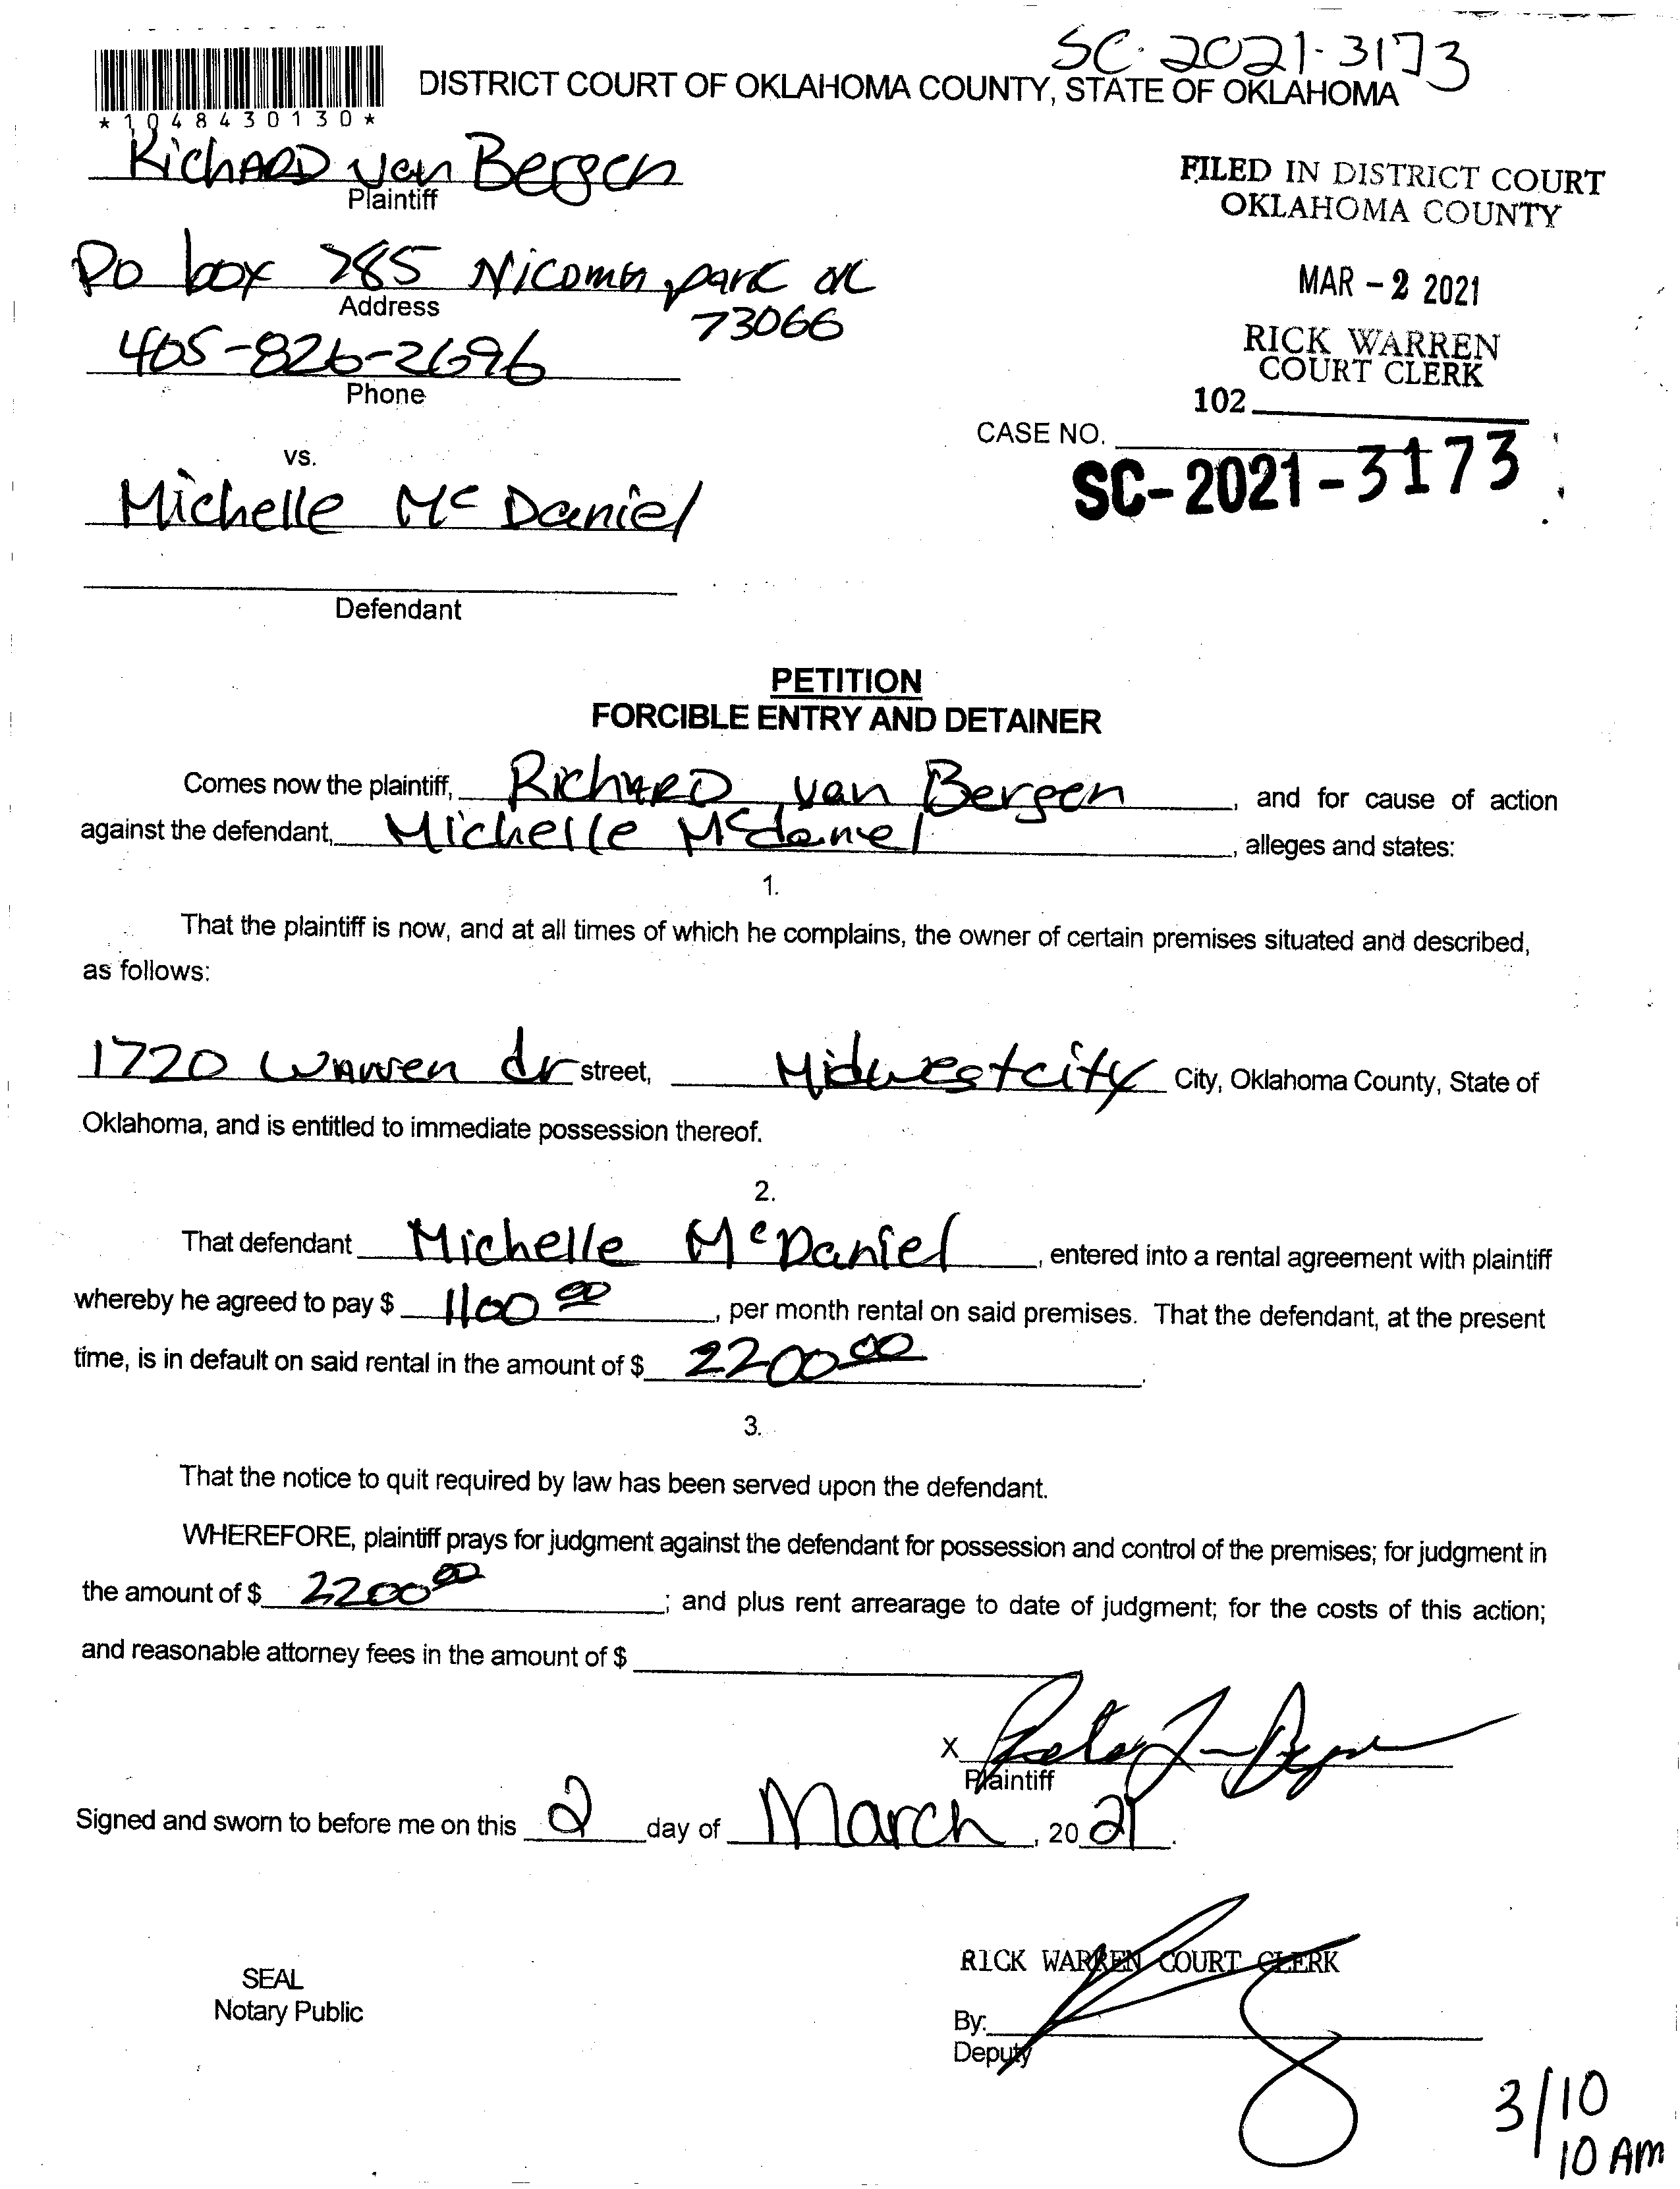 SC-2021-3173
*1048430130*
DISTRICT COURT OF OKLAHOMA COUNTY, STATE OF OKLAHOMA
RichARD van Bergen
Plaintiff
FILED IN DISTRICT COURT
OKLAHOMA COUNTY
PO box 285 Nicoma park OK
Address
73066
MAR - 2 2021
405-826-2696
Phone
RICK WARREN
COURT CLERK
102
CASE NO.
SC-2021-3173
vs.
Michelle McDaniel
Defendant
PETITION
FORCIBLE ENTRY AND DETAINER
Comes now the plaintiff, RichARD van Bergen, and for cause of action
against the defendant, Michelle Mcdaniel, alleges and states:
1.
That the plaintiff is now, and at all times of which he complains, the owner of certain premises situated and described,
as follows:
1720 Warren dr street, Midwestcity City, Oklahoma County, State of
Oklahoma, and is entitled to immediate possession thereof.
2.
That defendant Michelle McDaniel, entered into a rental agreement with plaintiff
whereby he agreed to pay $ 1100 00, per month rental on said premises. That the defendant, at the present
time, is in default on said rental in the amount of $ 2200 00.
3.
That the notice to quit required by law has been served upon the defendant.
WHEREFORE, plaintiff prays for judgment against the defendant for possession and control of the premises; for judgment in
the amount of $ 2200 00; and plus rent arrearage to date of judgment; for the costs of this action;
and reasonable attorney fees in the amount of $
X
Plaintiff
Signed and sworn to before me on this 2 day of March, 2021.
RICK WARREN COURT CLERK
SEAL
Notary Public
By:
Deputy
3/10
10 AM